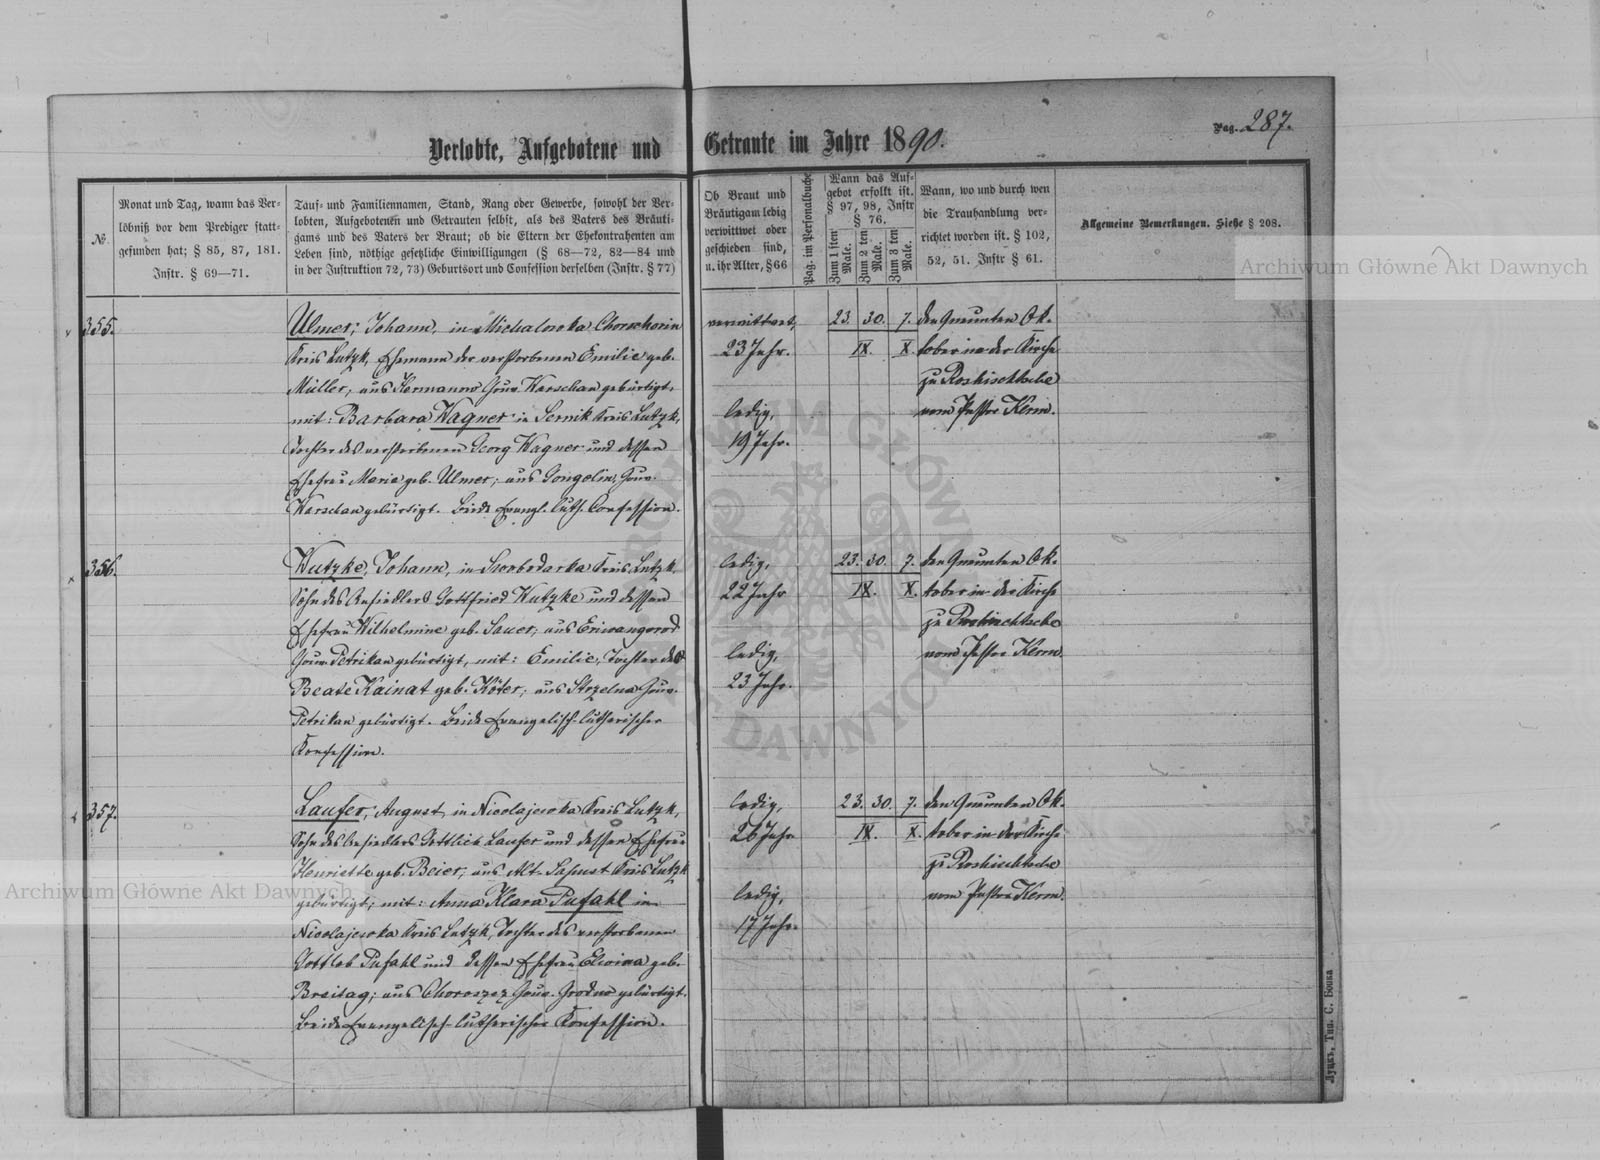 Pag. 287.
Verlobte, Aufgebotene und Getraute im Jahre 1890.
№.
Monat und Tag, wann das Ver-
löbniß vor dem Prediger statt-
gefunden hat; § 85, 87, 181.
Instr. § 69—71.
Tauf- und Familiennamen, Stand, Rang oder Gewerbe, sowohl der Ver-
lobten, Aufgebotenen und Getrauten selbst, als des Vaters des Bräuti-
gams und des Vaters der Braut; ob die Eltern der Ehekontrahenten am
Leben sind, nöthige gesetzliche Einwilligungen (§ 68—72, 82—84 und
in der Instruktion 72, 73) Geburtsort und Confession derselben (Instr. § 77)
Ob Braut und
Bräutigam ledig
verwittwet oder
geschieden sind,
u. ihr Alter, § 66
Pag. im Personalbuche
Wann das Auf-
gebot erfolgt ist.
§ 97, 98, Instr
§ 76.
Zum 1 sten
Male.
Zum 2 ten
Male.
Zum 3 ten
Male.
Wann, wo und durch wen
die Trauhandlung ver-
richtet worden ist. § 102,
52, 51. Instr § 61.
Allgemeine Bemerkungen. Siehe § 208.
355.
Ulmer, Johann, in Michalowka Chorochorin
Kreis Lutzk, Ehemann der verstorbenen Emilie geb.
Müller, aus Hermanow Gouv. Warschau gebürtigt,
mit: Barbara Wagner in Sernik Kreis Lutzk,
Tochter des verstorbenen Georg Wagner und dessen
Ehefrau Marie geb. Ulmer, aus Gongolin, Gouv.
Warschau gebürtigt. Beide Evangl. luth. Confession.
verwittwet,
23 Jahr.
ledig,
19 Jahr.
23. 30. 7.
IX. X.
den Neunten Ok-
tober in der Kirche
zu Roshischtsche
vom Pastor Kerm.
356.
Wutzke, Johann, in Swobodarka Kreis Lutzk,
Sohn des Ansiedlers Gottfried Wutzke und dessen
Ehefrau Wilhelmine geb. Sauer, aus Eriwangorod
Gouv. Petrikau gebürtigt, mit: Emilie, Tochter der
Beate Kainat geb. Köter, aus Strzelna Gouv.
Petrikau gebürtigt. Beide Evangelisch-lutherischer
Konfession.
ledig,
22 Jahr
ledig,
23 Jahr.
23. 30. 7.
IX. X.
den Neunten Ok-
tober in der Kirche
zu Roshischtsche
vom Pastor Kerm.
357.
Laufer, August, in Nicolajewka Kreis Lutzk,
Sohn des Ansiedlers Gottlieb Laufer und dessen Ehefrau
Henriette geb. Beier, aus Alt-Sapust Kreis Lutzk
gebürtigt, mit: Anna Klara Pufahl in
Nicolajewka Kreis Lutzk, Tochter des verstorbenen
Gottlob Pufahl und dessen Ehefrau Elwina geb.
Breitag, aus Choroszcz Gouv. Grodno gebürtigt.
Beide Evangelisch-lutherischer Konfession.
ledig,
26 Jahr
ledig,
17 Jahr.
23. 30. 7.
IX. X.
den Neunten Ok-
tober in der Kirche
zu Roshischtsche
vom Pastor Kerm.
Луцкъ, Тип. С. Бонка
Archiwum Główne Akt Dawnych
Archiwum Główne Akt Dawnych
ARCHIWUM GŁÓWNE AKT DAWNYCH